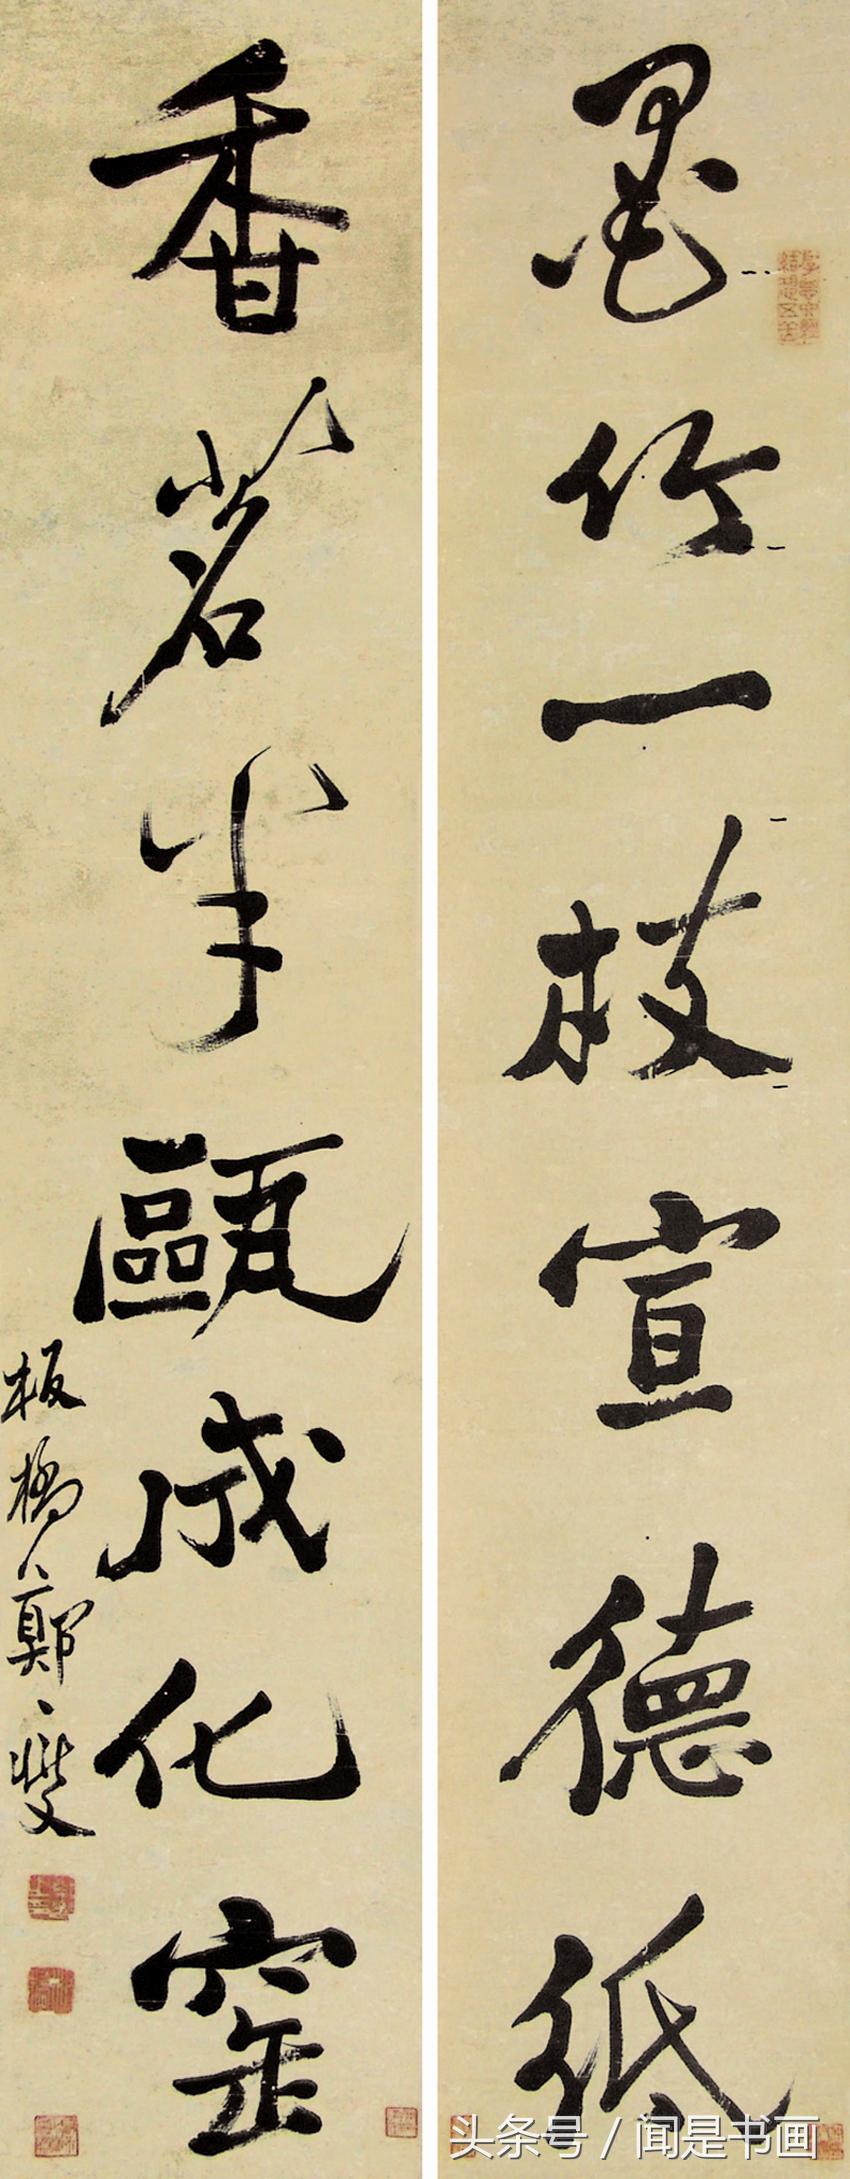 墨竹一枝宣德紙
香茗半甌成化窑
板橋鄭燮
头条号 / 闻是书画